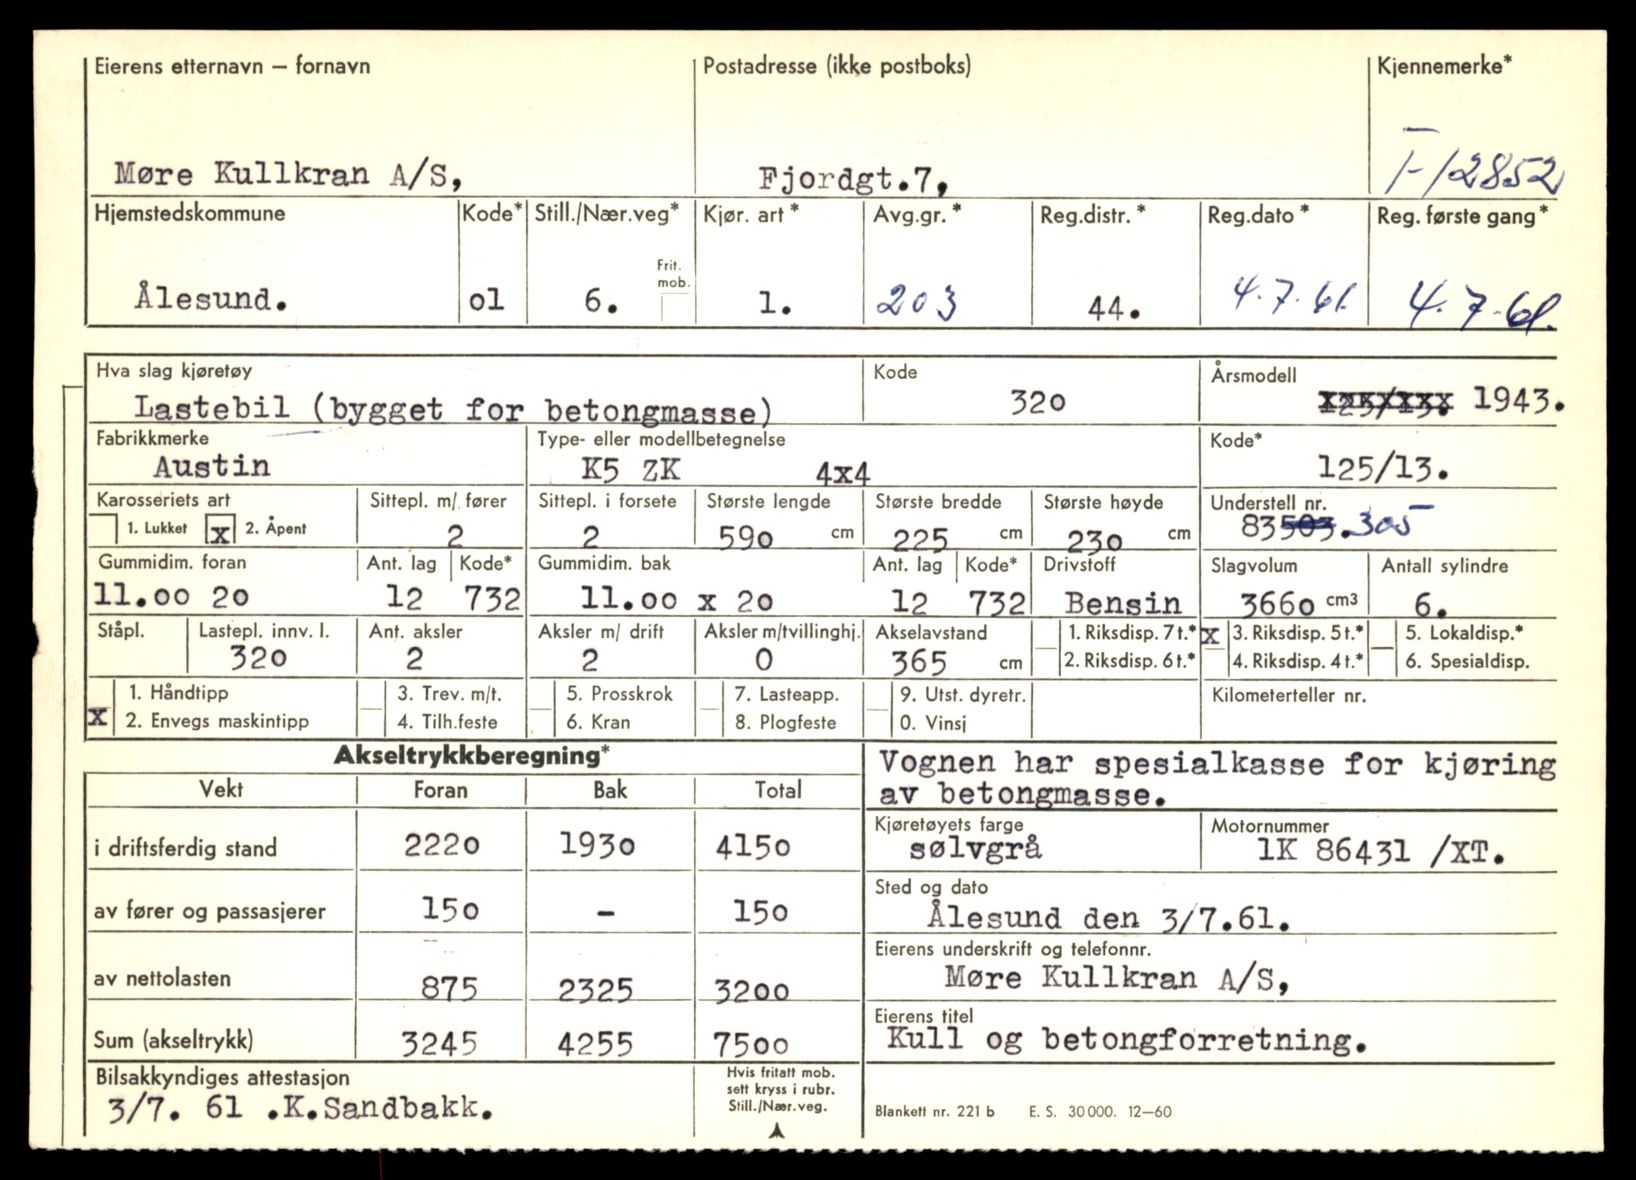 Eierens etternavn – fornavn Postadresse (ikke postboks) Kjennemerke*
Møre Kullkran A/S, Fjordgt.7, T-12852
Hjemstedskommune Kode* Still./Nær.veg* Kjør. art * Avg.gr. * Reg.distr. * Reg.dato * Reg. første gang *
Frit.
mob.
Ålesund. 01 6. 1. 203 44. 4.7.61. 4.7.61.
Hva slag kjøretøy Kode Årsmodell
Lastebil (bygget for betongmasse) 320 1943.
Fabrikkmerke Type- eller modellbetegnelse Kode*
Austin K5 ZK 4x4 125/13.
Karosseriets art Sittepl. m/ fører Sittepl. i forsete Største lengde Største bredde Største høyde Understell nr.
1. Lukket x 2. Åpent 2 2 590 cm 225 cm 230 cm 83503.305
Gummidim. foran Ant. lag Kode* Gummidim. bak Ant. lag Kode* Drivstoff Slagvolum Antall sylindre
11.00 20 12 732 11.00 x 20 12 732 Bensin 3660 cm3 6.
Ståpl. Lastepl. innv. l. Ant. aksler Aksler m/ drift Aksler m/tvillinghj. Akselavstand 1. Riksdisp. 7 t.* x 3. Riksdisp. 5 t.* 5. Lokaldisp.*
320 2 2 0 365 cm 2. Riksdisp. 6 t.* 4. Riksdisp. 4 t.* 6. Spesialdisp.
1. Håndtipp 3. Trev. m/t. 5. Prosskrok 7. Lasteapp. 9. Utst. dyretr. Kilometerteller nr.
x 2. Envegs maskintipp 4. Tilh.feste 6. Kran 8. Plogfeste 0. Vinsj
Akseltrykkberegning*
Vekt Foran Bak Total
i driftsferdig stand 2220 1930 4150
av fører og passasjerer 150 – 150
av nettolasten 875 2325 3200
Sum (akseltrykk) 3245 4255 7500
Bilsakkyndiges attestasjon
3/7. 61 .K.Sandbakk.
Hvis fritatt mob.
sett kryss i rubr.
Still./Nær.veg.
Vognen har spesialkasse for kjøring
av betongmasse.
Kjøretøyets farge Motornummer
sølvgrå 1K 86431 /XT.
Sted og dato
Ålesund den 3/7.61.
Eierens underskrift og telefonnr.
Møre Kullkran A/S,
Eierens titel
Kull og betongforretning.
Blankett nr. 221 b E. S. 30 000. 12–60